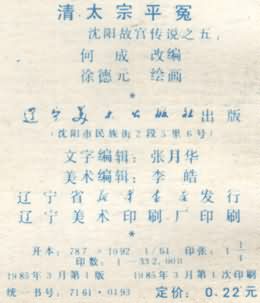 清太宗平冤
沈阳故宫传说之五
何成 改编
徐德元 绘画
*
辽宁美术出版社出版
(沈阳市民族街2段5里6号)
文字编辑：张月华
美术编辑：李皓
辽宁省新华书店发行
辽宁美术印刷厂印刷
*
开本：787×1092 1/64 印张：1 1/4
印数：1—332,000
1985年3月第1版 1985年3月第1次印刷
统一书号：7161·0193 定价：0.22元